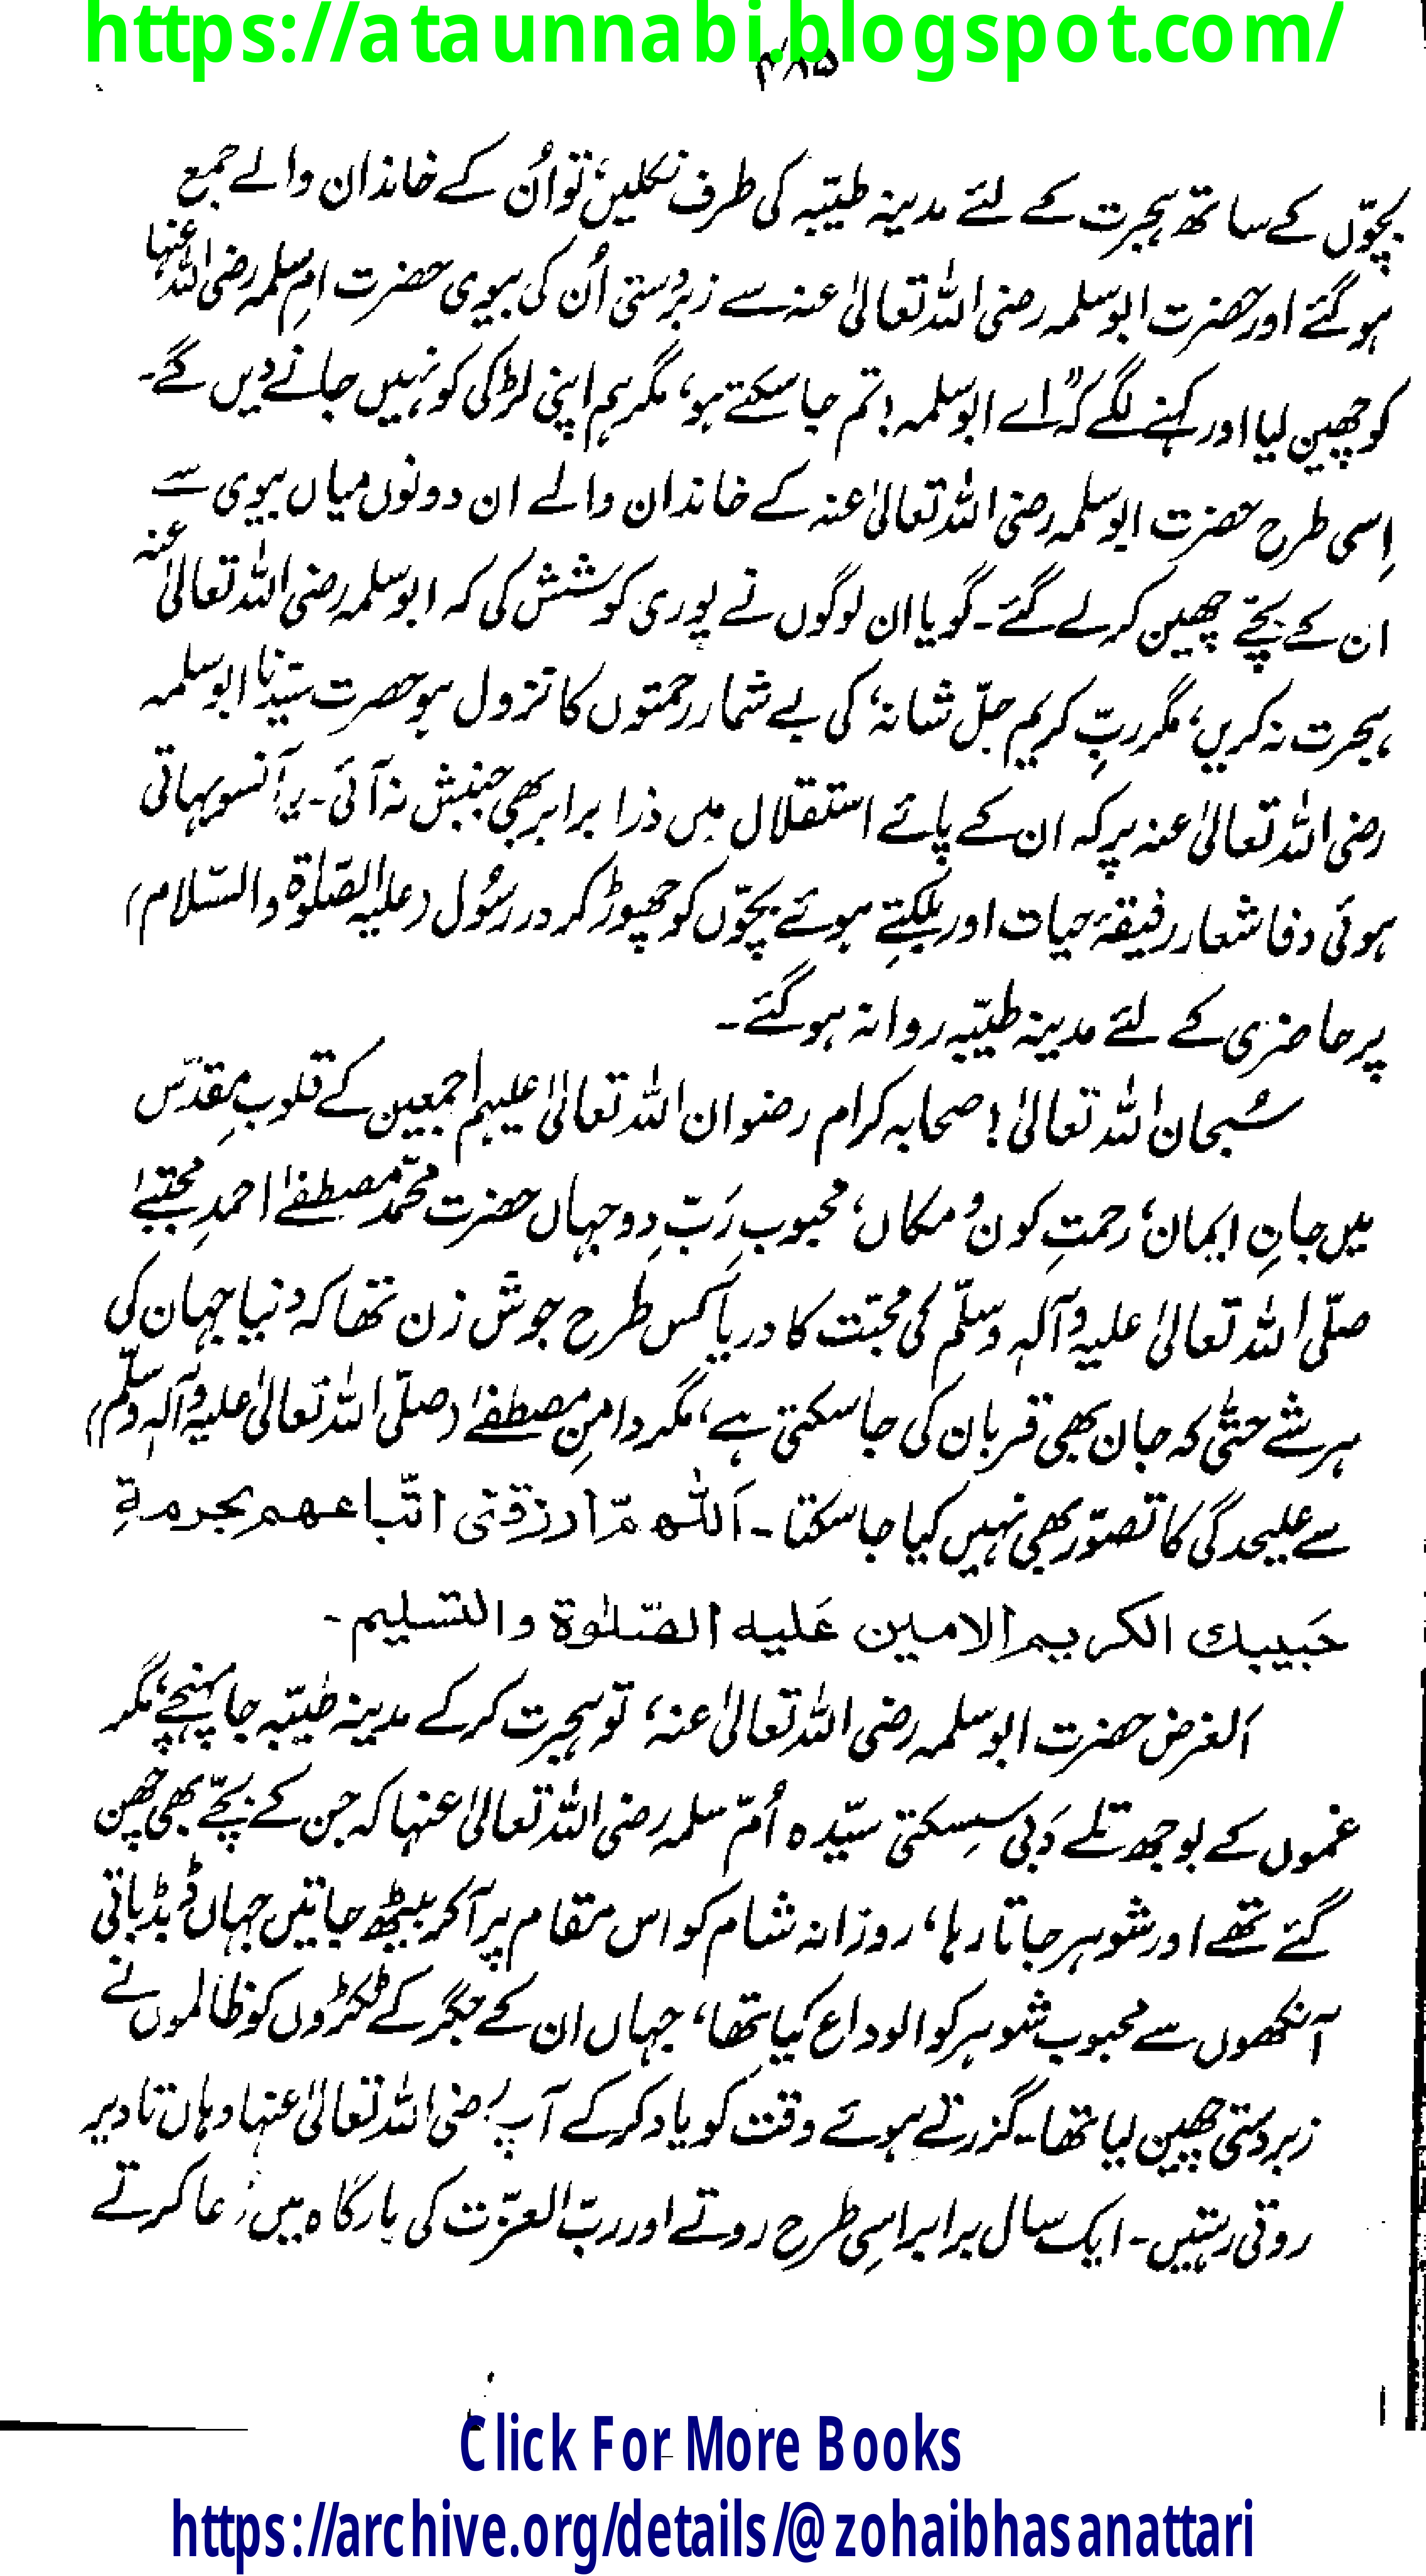 https://ataunnabi.blogspot.com/
۴۸۵
بچّوں کے ساتھ ہجرت کے لئے مدینہ طیّبہ کی طرف نکلیں، تو اُن کے خاندان والے جمع
ہو گئے اور حضرت ابو سلمہ رضی اللہ تعالیٰ عنہ سے زبردستی اُن کی بیوی حضرت امِ سلمہ رضی اللہ عنہا
کو چھین لیا اور کہنے لگے کہ "اے ابو سلمہ! تم جا سکتے ہو، مگر ہم اپنی لڑکی کو نہیں جانے دیں گے۔
اِسی طرح حضرت ابو سلمہ رضی اللہ تعالیٰ عنہ کے خاندان والے ان دونوں میاں بیوی سے
ان کے بچّے چھین کر لے گئے۔ گویا ان لوگوں نے پوری کوشش کی کہ ابو سلمہ رضی اللہ تعالیٰ عنہ
ہجرت نہ کریں، مگر ربِّ کریم جلّ شانہٗ کی بے شمار رحمتوں کا نزول ہو حضرت سیّدنا ابو سلمہ
رضی اللہ تعالیٰ عنہ پر کہ ان کے پائے استقلال میں ذرا برابر بھی جنبش نہ آئی۔ یہ آنسو بہاتی
ہوئی وفا شعار رفیقۂ حیات اور بِلکتے ہوئے بچّوں کو چھوڑ کر در رسُول (علیہ الصّلوٰۃ والسّلام)
پر حاضری کے لئے مدینہ طیّبہ روانہ ہو گئے۔
سُبحان اللہ تعالیٰ! صحابہ کرام رضوان اللہ تعالیٰ علیہم اجمعین کے قلوبِ مقدّس
میں جانِ ایمان، رحمتِ کون و مکاں، محبوبِ رَبِّ دو جہاں حضرت محمّد مصطفےٰ احمدِ مجتبےٰ
صلّی اللہ تعالیٰ علیہ وآلہٖ وسلّم کی محبّت کا دریا کس طرح جوش زن تھا کہ دنیا جہان کی
ہر شے حتّٰی کہ جان بھی قربان کی جا سکتی ہے، مگر دامنِ مصطفےٰ (صلّی اللہ تعالیٰ علیہ وآلہٖ وسلّم)
سے علیحدگی کا تصوّر بھی نہیں کیا جا سکتا۔ اَللّٰھمّ ارزقنی اتّباعھم بحرمةِ
حَبیبك الکریم الامین عَلیه الصّلوٰة والتسلیم۔
اَلغرض حضرت ابو سلمہ رضی اللہ تعالیٰ عنہ، تو ہجرت کر کے مدینہ طیّبہ جا پہنچے، مگر
غموں کے بوجھ تلے دَبی سِسکتی سیّدہ اُمّ سلمہ رضی اللہ تعالیٰ عنہا کہ جن کے بچّے بھی چھن
گئے تھے اور شوہر جاتا رہا، روزانہ شام کو اس مقام پر آ کر بیٹھ جاتیں جہاں ڈبڈباتی
آنکھوں سے محبوب شوہر کو الوداع کیا تھا، جہاں ان کے جگر کے ٹکڑوں کو ظالموں نے
زبردستی چھین لیا تھا۔ گزرتے ہوئے وقت کو یاد کر کے آپ رضی اللہ تعالیٰ عنہا وہاں تا دیر
روتی رہتیں۔ ایک سال برابر اسِی طرح روتے اور ربّ العزّت کی بارگاہ میں دُعا کرتے
Click For More Books
https://archive.org/details/@zohaibhasanattari